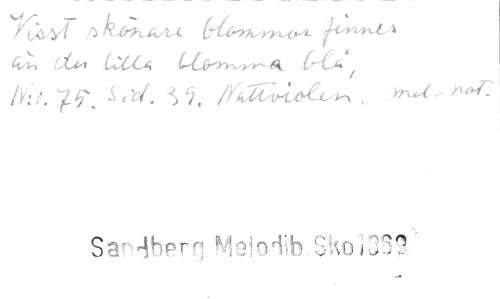 Visst skönare blommor finnes
än du lilla blomma blå,
N:o. 75. Sid. 39. Nattviolen. mel-not.
Sandberg.Melodib.Sko1869